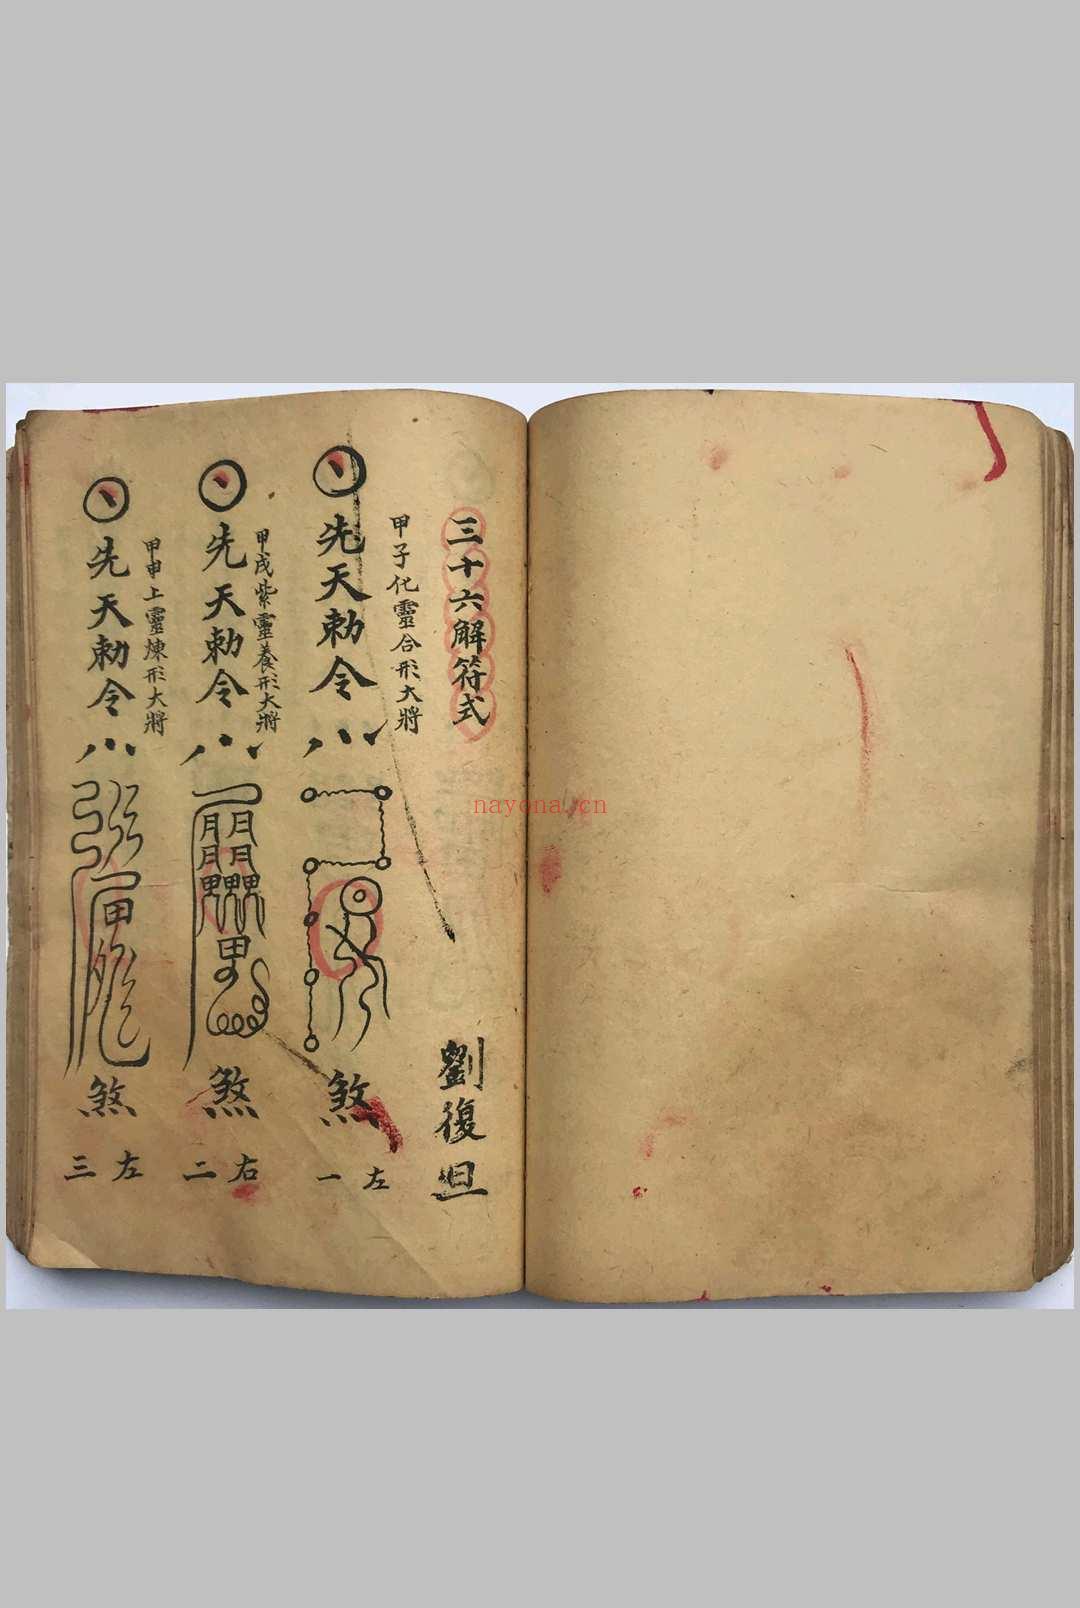 三十六解符式
劉復旦
甲子化靈合形大將
先天勅令
煞
左一
甲戌紫靈養形大將
先天勅令
煞
右二
甲申上靈煉形大將
先天勅令
煞
左三
nayona.cn